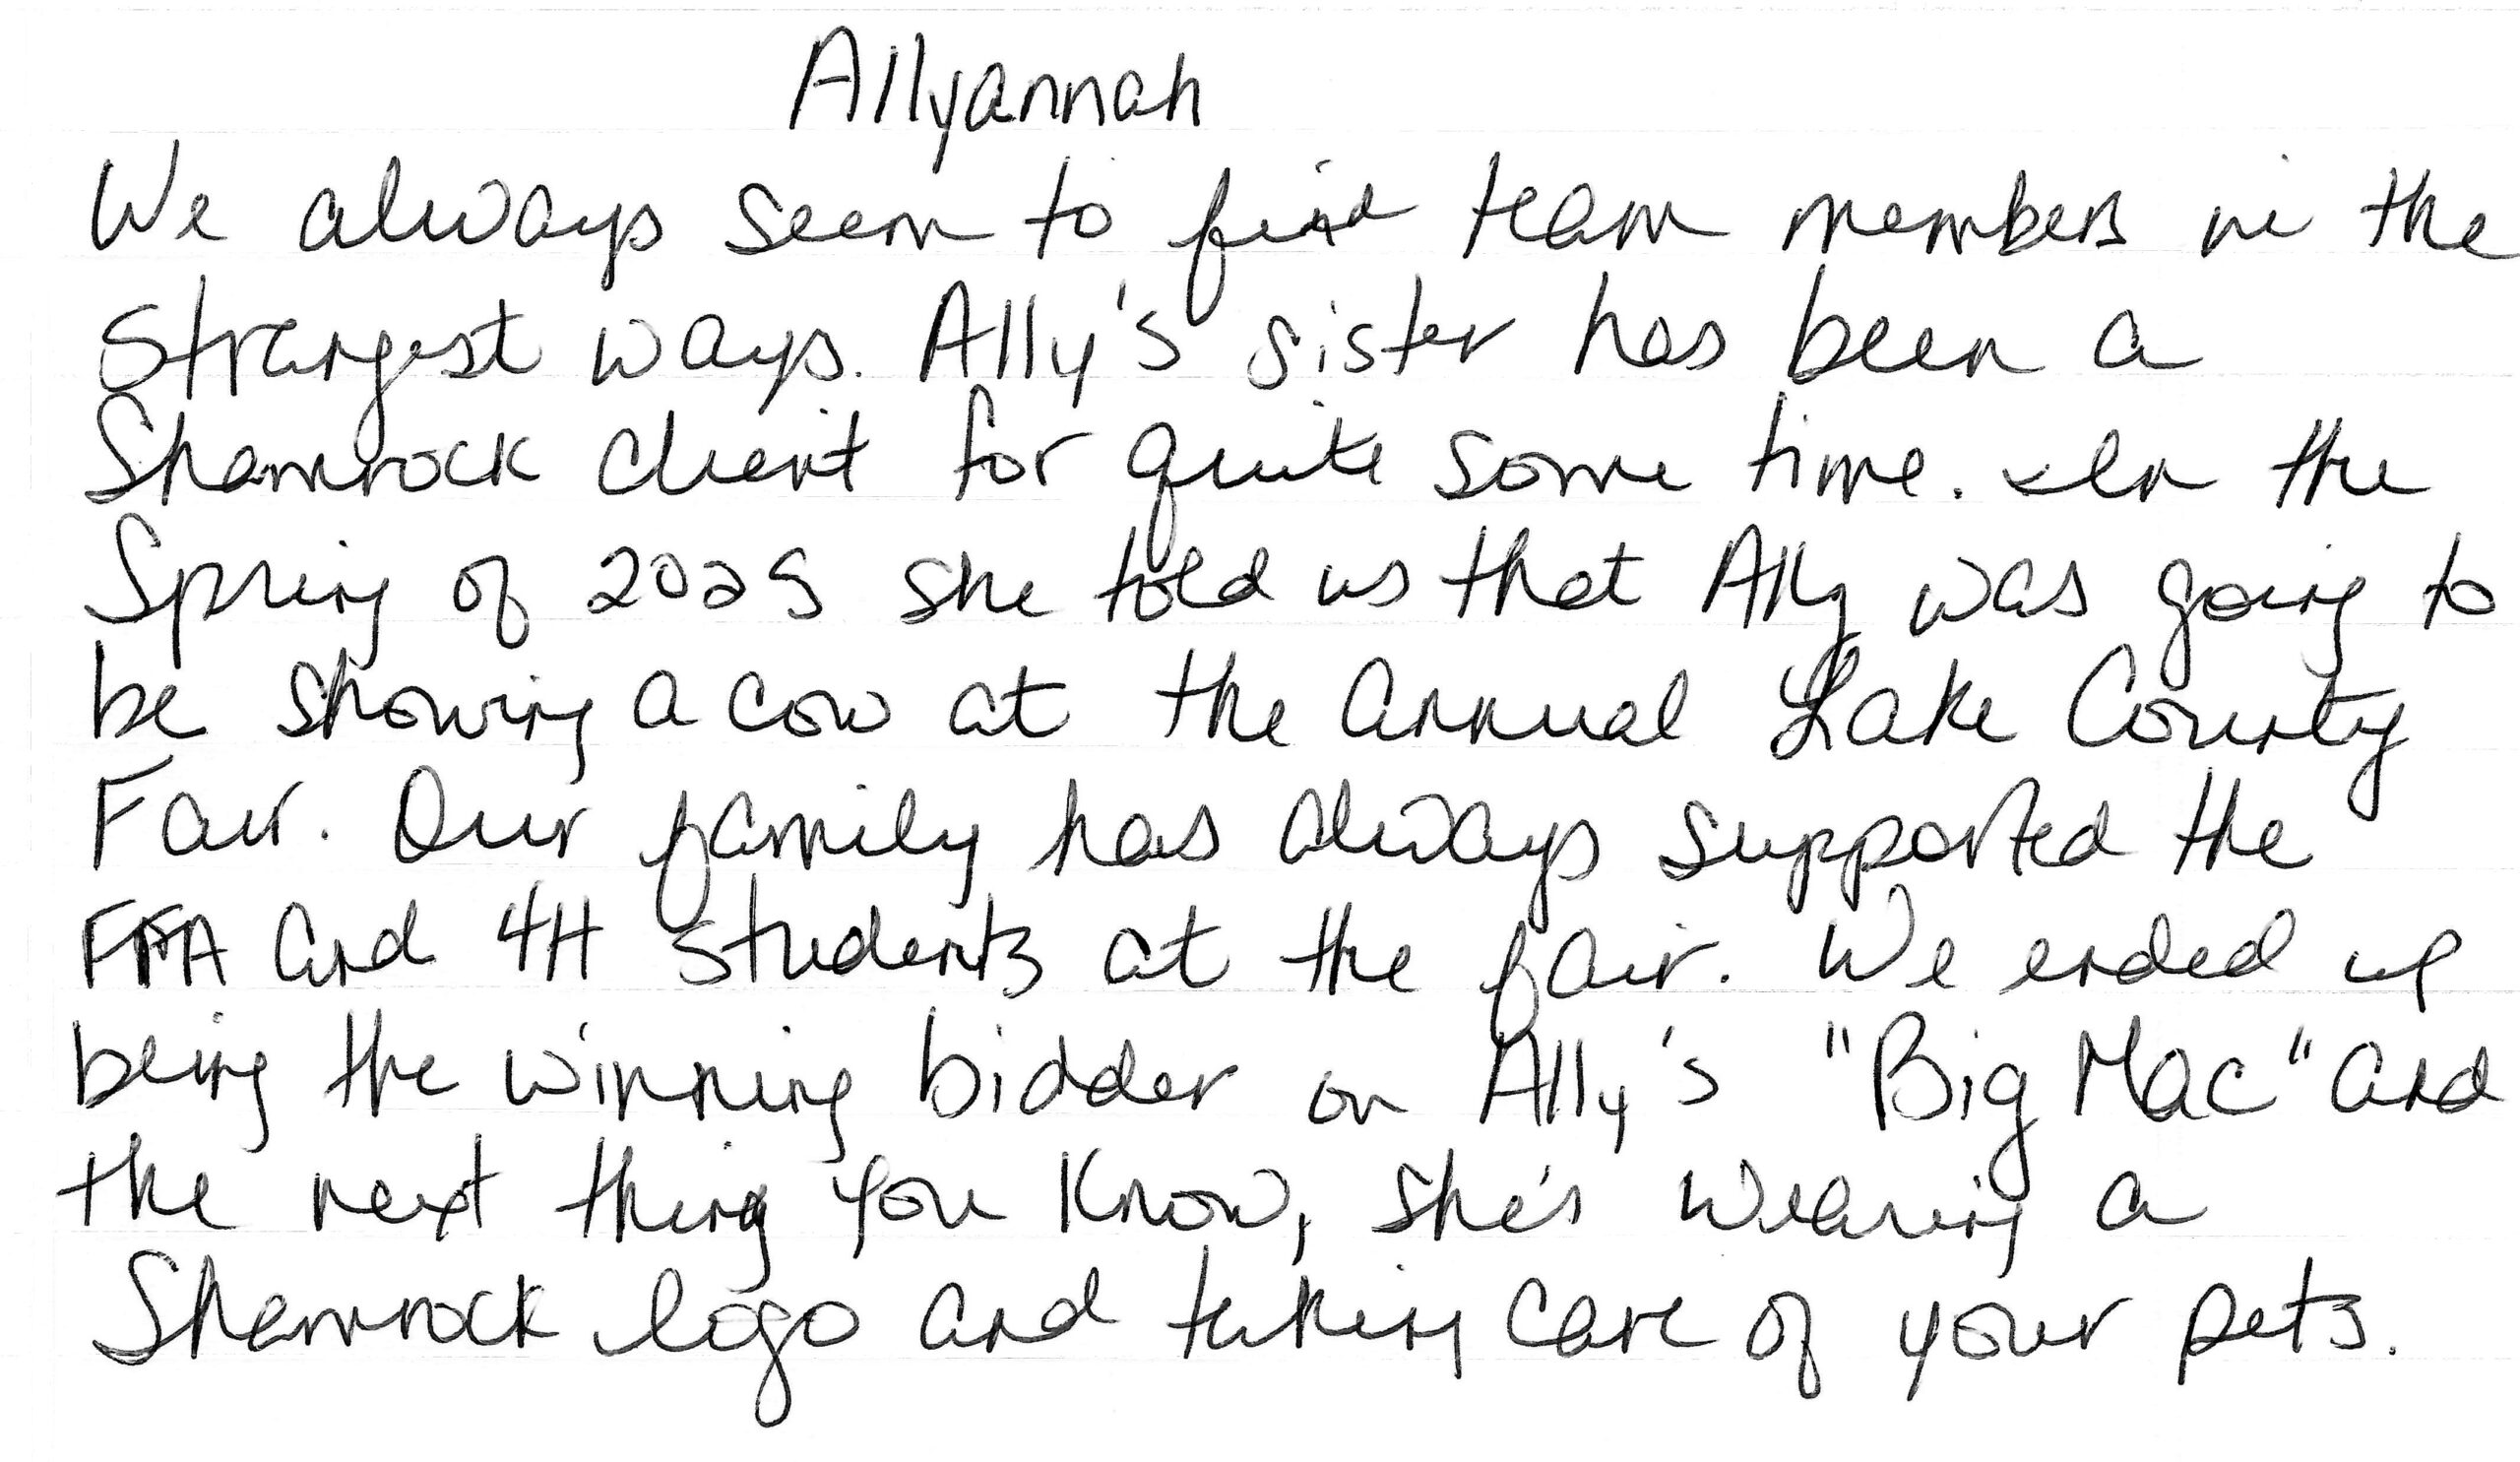 Allyannah
We always seem to find team members in the
strangest ways. Ally's sister has been a
Shamrock client for quite some time. In the
Spring of 2025 she told us that Ally was going to
be showing a cow at the annual Lake County
Fair. Our family has always supported the
FFA and 4H students at the fair. We ended up
being the winning bidder on Ally's "Big Mac" and
the next thing you know, she's wearing a
Shamrock logo and taking care of your pets.